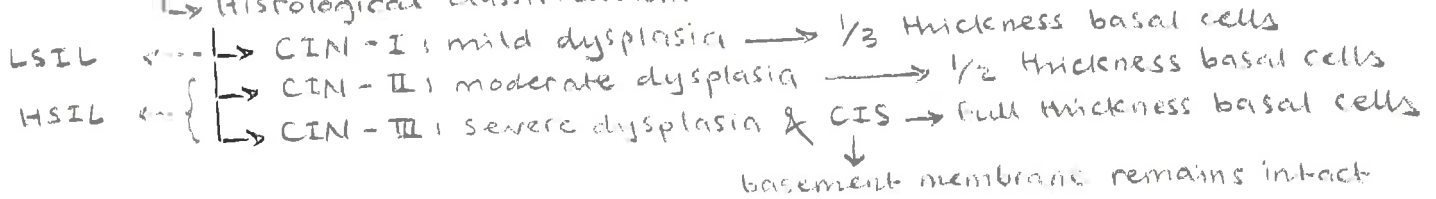 ↳ Histological
LSIL ⇠ ↳ CIN-I : mild dysplasia → 1/3 thickness basal cells
↳ CIN-II : moderate dysplasia → 1/2 thickness basal cells
HSIL ⇠ { ↳ CIN-III : severe dysplasia & CIS → Full thickness basal cells
↓
basement membrane remains intact